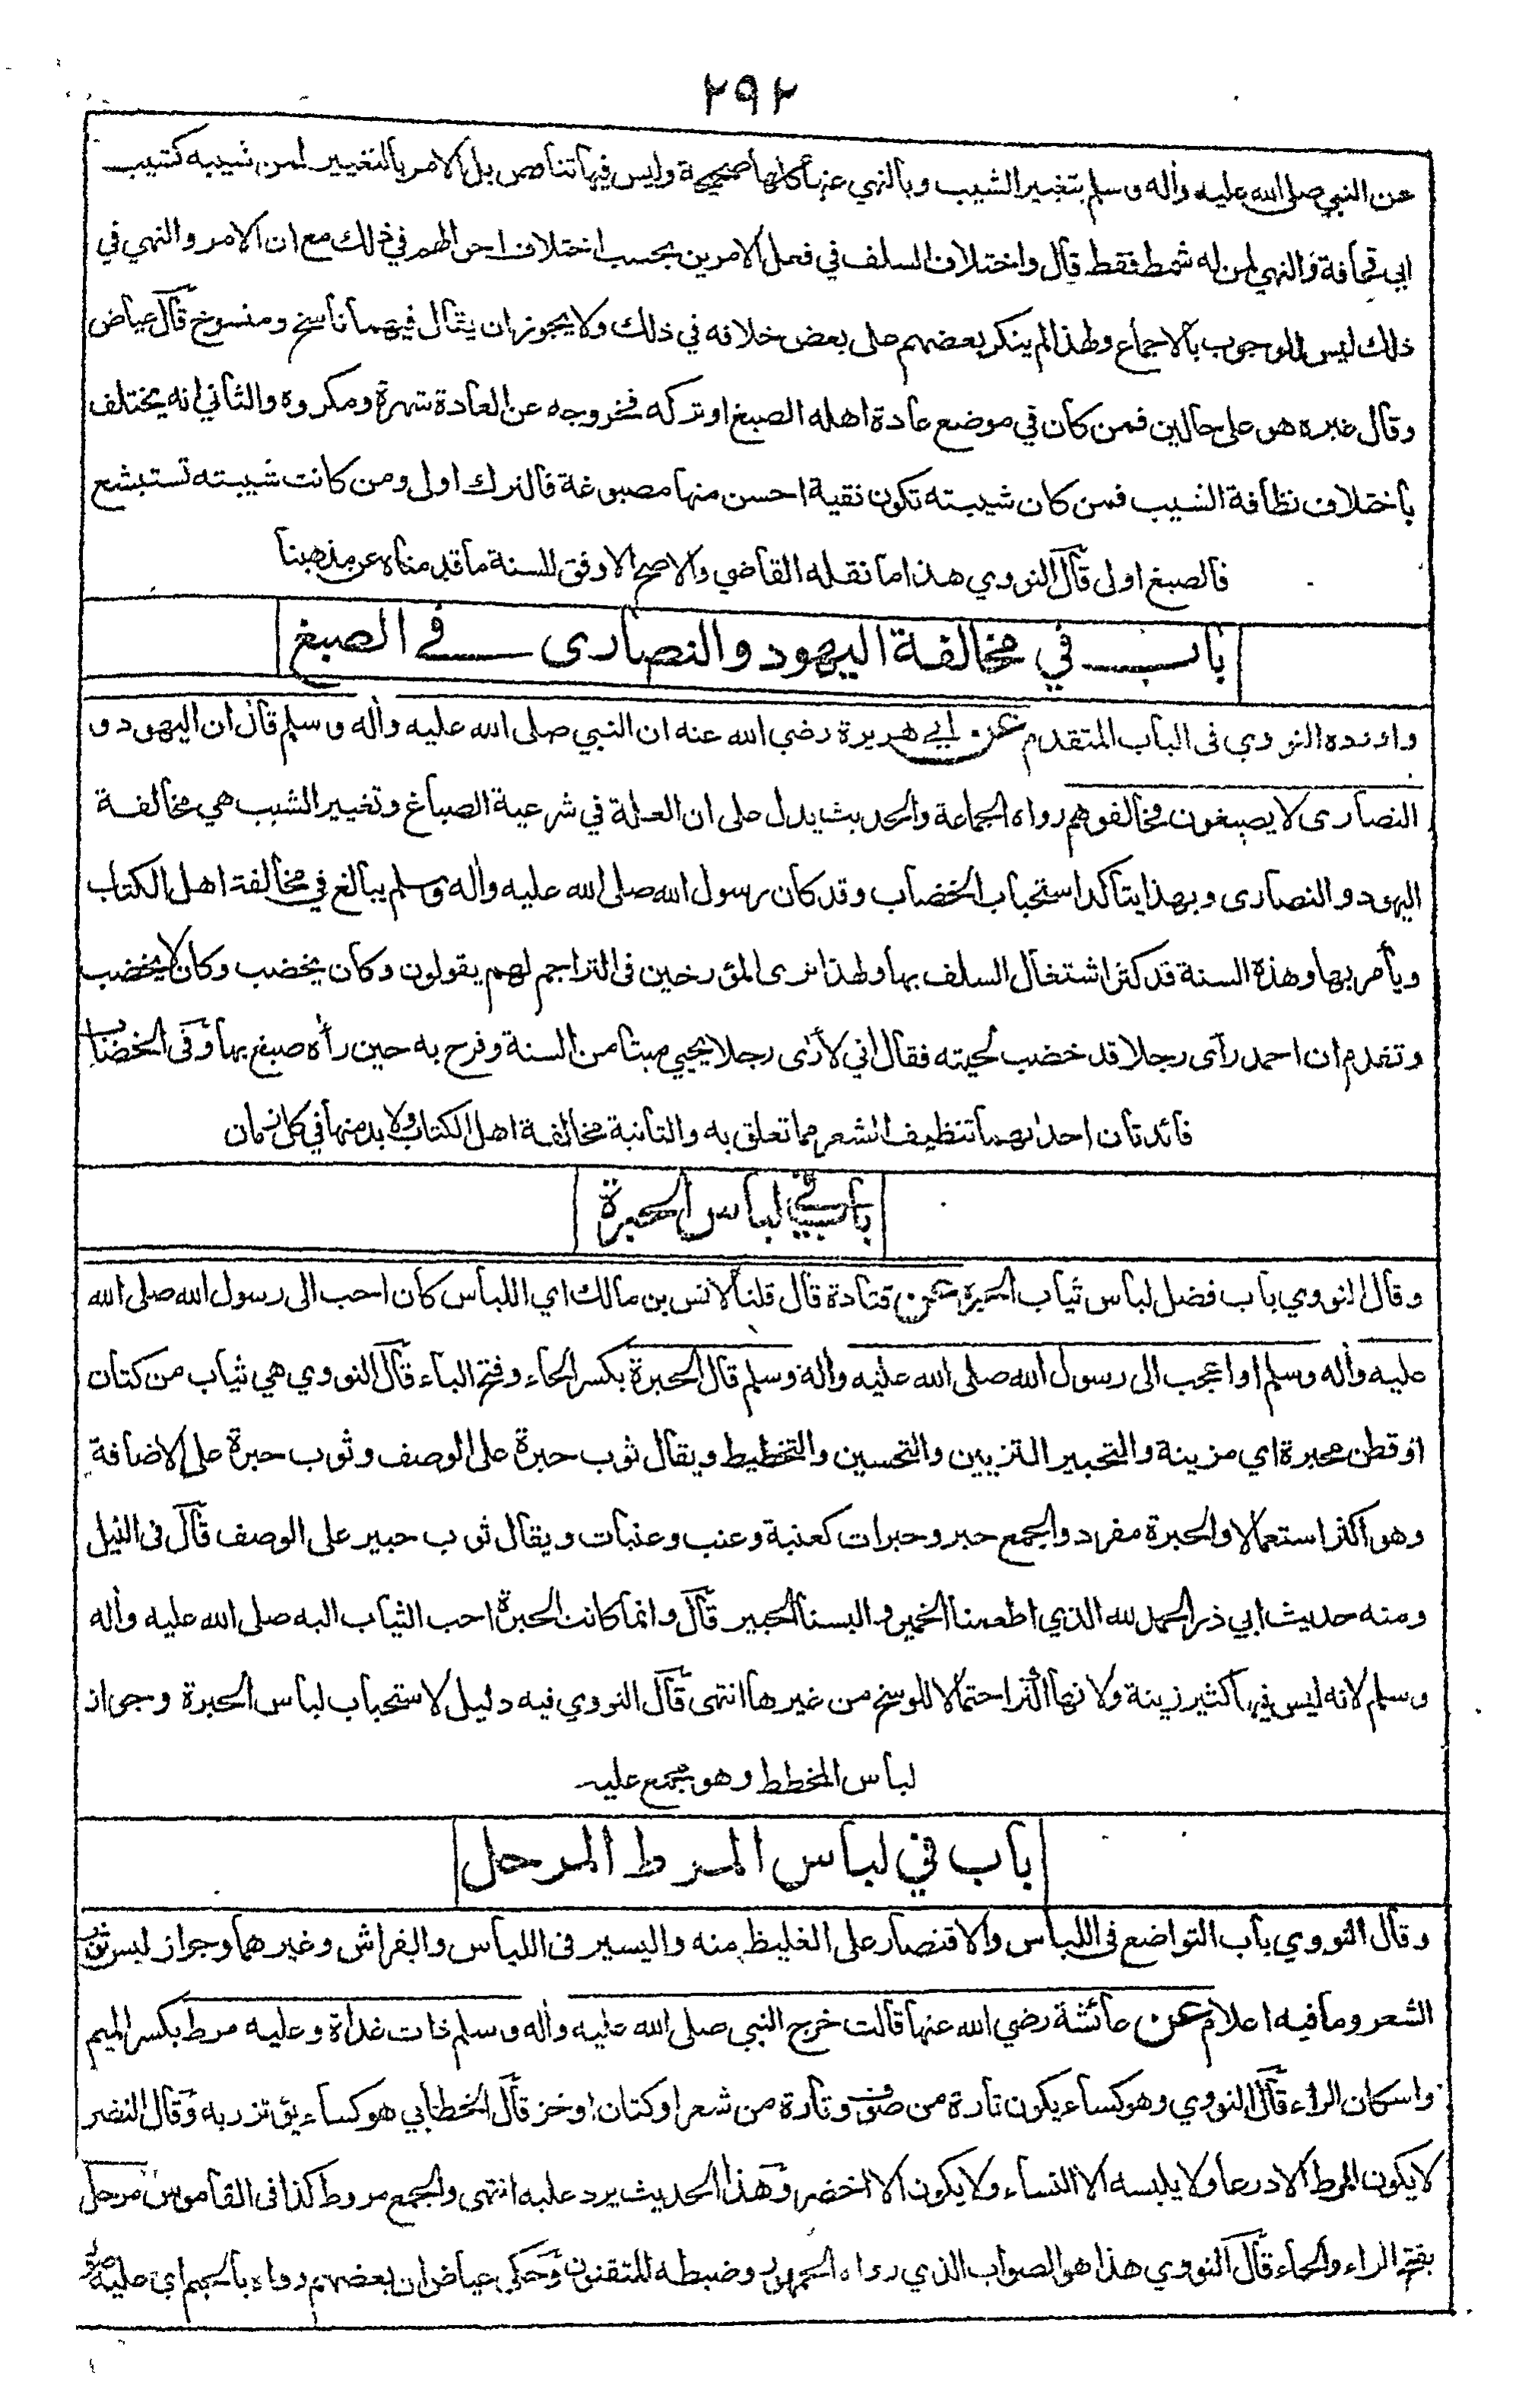 ٢٩٢
عن النبي صلى الله عليه واٰله وسلم بتغيير الشيب وبالنهي عنها كلها صحيحة وليس فيها تناقص بل الامر بالتغيير لمن شيبه كشيب
ابي قحافة والنهي لمن له شمط فقط قال واختلاف السلف في فعل الامرين بحسب اختلاف احوالهم في ذلك مع ان الامر والنهي في
ذلك ليس للوجوب بالاجماع ولهذا لم ينكر بعضهم على بعض خلافه في ذلك ولا يجوز ان يقال فيهما ناسخ ومنسوخ قال عياض
وقال غيره هو على حالين فمن كان في موضع عادة اهله الصبغ او تركه فخروجه عن العادة شهرة ومكروه والثاني انه يختلف
باختلاف نظافة الشيب فمن كان شيبته تكون نقية احسن منها مصبوغة فالترك اولى ومن كانت شيبته تستبشع
فالصبغ اولى قال النووي هذا ما نقله القاضي والاصح الاوفق للسنة ما قدمناه عن مذهبنا
باب في مخالفة اليهود والنصارى في الصبغ
واورده النووي فى الباب المتقدم عن ابي هريرة رضي الله عنه ان النبي صلى الله عليه واٰله وسلم قال ان اليهود و
النصارى لا يصبغون فخالفوهم رواه الجماعة والحديث يدل على ان العلة في شرعية الصباغ وتغيير الشيب هي مخالفة
اليهود والنصارى وبهذا يتأكد استحباب الخضاب وقد كان رسول الله صلى الله عليه واٰله وسلم يبالغ في مخالفة اهل الكتاب
ويأمر بها وهذه السنة قد كثر اشتغال السلف بها ولهذا ترى المؤرخين فى التراجم لهم يقولون وكان يخضب وكان لا يخضب
وتقدم ان احمد رآى رجلا قد خضب لحيته فقال اني لأرى رجلا يحيي ميتا من السنة وفرح به حين رأه صبغ بها وفى الخضاب
فائدتان احداهما تنظيف الشعر مما تعلق به والثانية مخالفة اهل الكتاب ولا بد منها في كل زمان
باب في لباس الحبرة
وقال النووي باب فضل لباس ثياب الحبرة عن قتادة قال قلنا لانس بن مالك اي اللباس كان احب الى رسول الله صلى الله
عليه واٰله وسلم او اعجب الى رسول الله صلى الله عليه واٰله وسلم قال الحبرة بكسر الحاء وفتح الباء قال النووي هي ثياب من كتان
او قطن محبرة اي مزينة والتحبير التزيين والتحسين والتخطيط ويقال ثوب حبرة على الوصف وثوب حبرة على الاضافة
وهو اكثر استعمالا والحبرة مفرد والجمع حبر وحبرات كعنبة وعنب وعنبات ويقال ثوب حبير على الوصف قال فى النيل
ومنه حديث ابي ذر الحمد لله الذي اطعمنا الخمير والبسنا الحبير قال وانما كانت الحبرة احب الثياب اليه صلى الله عليه واٰله
وسلم لانه ليس فيها كثير زينة ولانها اكثر احتمالا للوسخ من غيرها انتهى قال النووي فيه دليل لاستحباب لباس الحبرة وجواز
لباس المخطط وهو مجمع عليه
باب في لباس المرط المرحل
وقال النووي باب التواضع فى اللباس والاقتصار على الغليظ منه واليسير فى اللباس والفراش وغيرهما وجواز لبس ثوب
الشعر وما فيه اعلام عن عائشة رضي الله عنها قالت خرج النبي صلى الله عليه واٰله وسلم ذات غداة وعليه مرط بكسر الميم
واسكان الراء قال النووي وهو كساء يكون تارة من صوف وتارة من شعر او كتان او خز قال الخطابي هو كساء يؤتزر به وقال النضر
لا يكون المرط الا درعا ولا يلبسه الا النساء ولا يكون الا اخضر وهذا الحديث يرد عليه انتهى والجمع مروط كذا فى القاموس مرحل
بفتح الراء والحاء قال النووي هذا هو الصواب الذي رواه الجمهور وضبطه المتقنون وحكى عياض ان بعضهم رواه بالجيم اي عليه